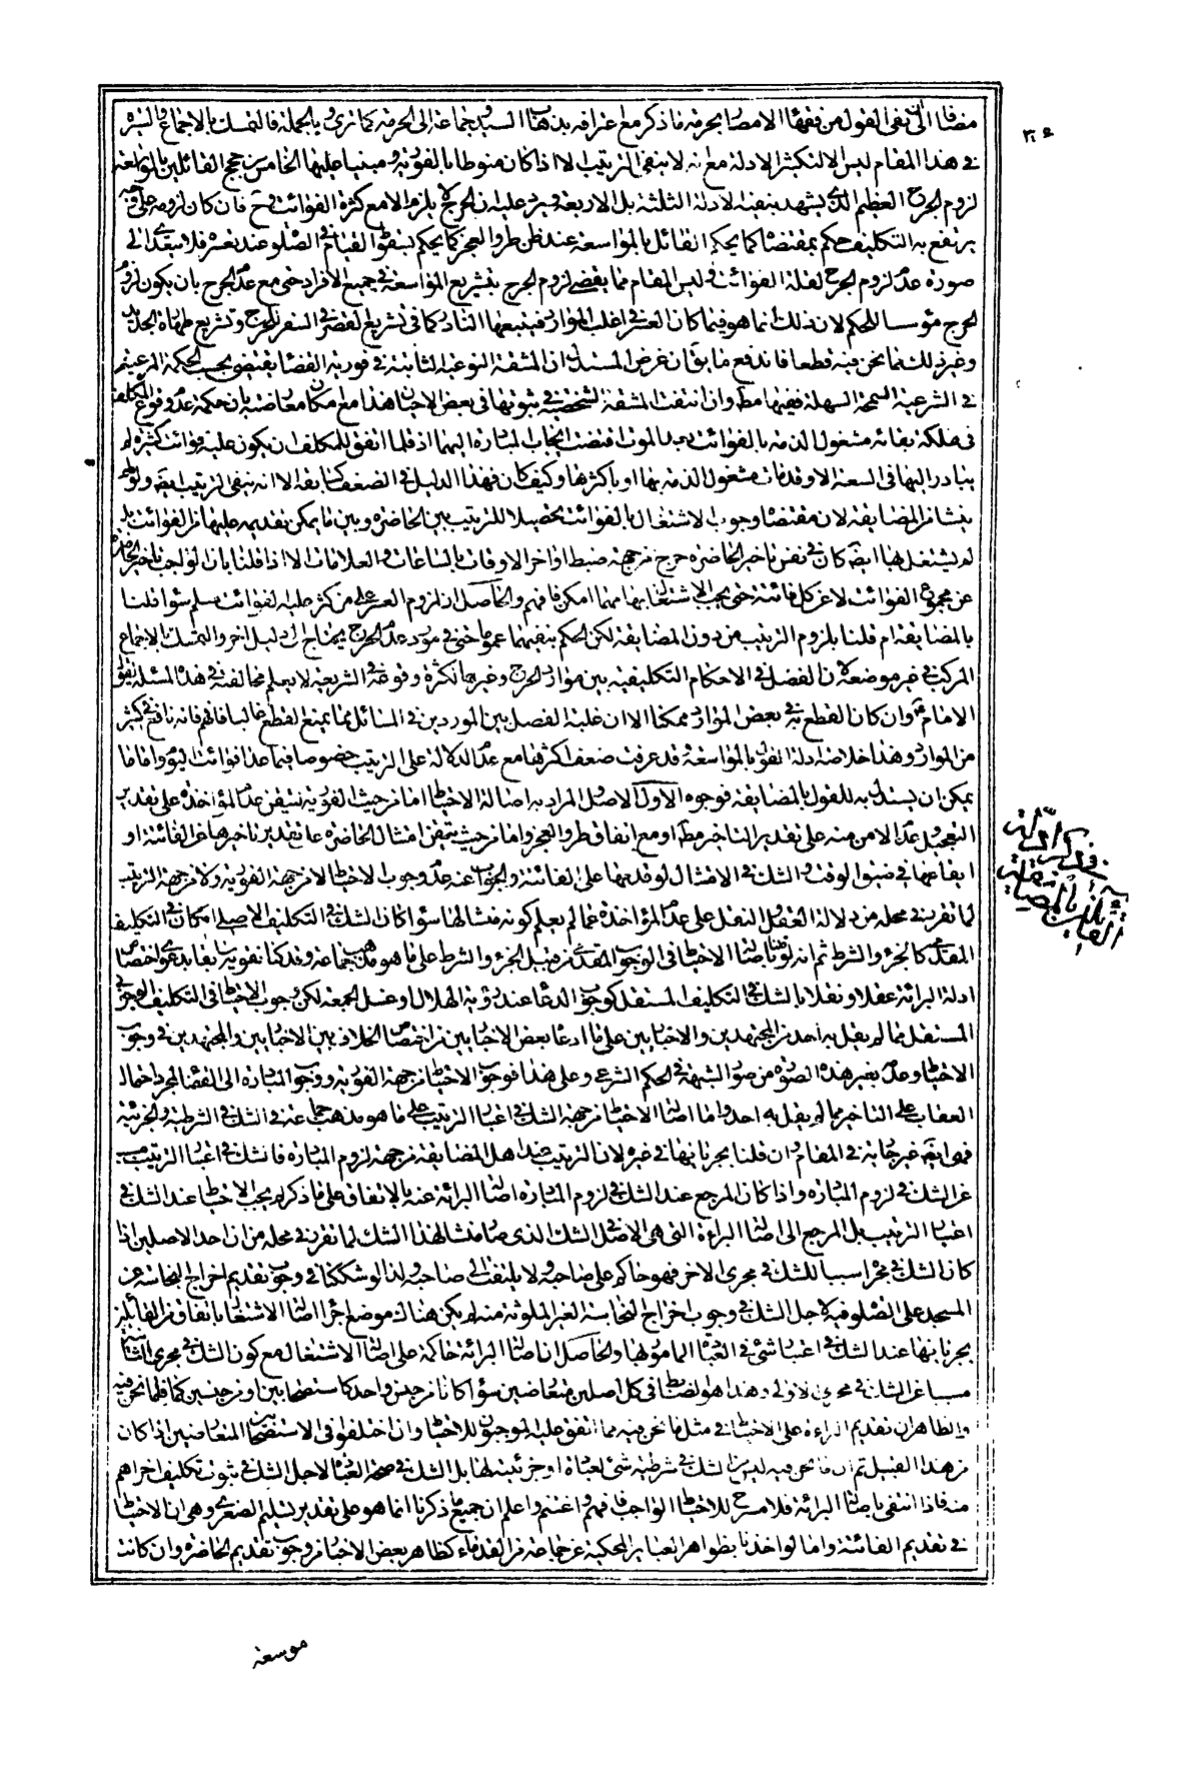 مضافا الى نفى القول من فقهاء الامصار بحرمة ما ذكر مع اعترافه بذهاب السيد وجماعة الى الحرمة كما ترى وبالجملة فالتمسك بالاجماع والسيرة
فى هذا المقام ليس الا لتكثير الادلة مع انه لا ينفى الترتيب الا اذا كان منوطا بالفورية ومبنيا عليها الخامس من حجج القائلين بالمواسعة
لزوم الحرج العظيم الذى يشهد بنفيه الادلة الثلثة بل الاربعة ويرد عليه ان الحرج لا يلزم الا مع كثرة الفوائت وح فان كان لزومه على وجه
يرتفع به التكليف حكم بمقتضاه كما يحكم القائل بالمواسعة عند ظن طرو العجز كما يحكم بسقوط القيام فى الصلوة عند تعسره فلا يتعدى الى
صورة عدم لزوم الحرج لقلة الفوائت وليس المقام مما يقضى لزوم الحرج بتشريع المواسعة فى جميع الافراد حتى مع عدم الحرج بان يكون لزوم
الحرج مؤسسا للحكم لان ذلك انما هو فيما كان العسر فى اغلب الموارد فيتبعها النادر كما فى تشريع القصر فى السفر للحرج وتشريع طهارة الحديد
وغير ذلك مما نحن فيه قطعا فاندفع ما يق ان غرض المستدل ان المشقة النوعية الثابتة فى فورية القضاء يقتضى بحسب الحكمة المرعية
فى الشرعية السمحة السهلة نفيها مط وان انتفت المشقة الشخصية فى ثبوتها فى بعض الاحيان هذا مع امكان معارضته بان حكمة عدم وقوع المكلف
فى مهلكة بقائه مشغول الذمة بالفوائت بعد الموت اقتضت ايجاب المبادرة اليها اذ قلما اتفق للمكلف ان يكون عليه فوائت كثيرة لم
يبادر اليها فى السعة الا وقد مات مشغول الذمة بها او باكثرها وكيف كان فهذا الدليل فى الضعف كسابقه الا انه ينفى الترتيب ايضا ولو لم
ينشا من المضايقة لان مقتضاه وجوب الاشتغال بالفوائت تحصيلا للترتيب بين الحاضرة وبين ما يمكن تقديمه عليها من الفوائت بل
لم يشتغل بها ايضا كان فى نفس تاخير الحاضرة حرج من جهة ضبط اواخر الاوقات بالساعات والعلامات الا اذا قلنا بان الواجب تاخير الحاضرة
عن مجموع الفوائت لا عن كل فائتة حتى يجب الاشتغال بها مهما امكن فافهم والحاصل ان لزوم العسر على من كثر عليه الفوائت مسلم سواء قلنا
بالمضايقة ام قلنا بلزوم الترتيب من دون المضايقة لكن الحكم بنفيهما عموما حتى فى مورد عدم الحرج يحتاج الى دليل اخر والتمسك بالاجماع
المركب فى غير موضعه لان الفصل فى الاحكام التكليفية بين موارد الحرج وغيرها لكثرة وقوعه فى الشريعة لا يعلم مخالفته فى هذه المسئلة لقول
الامام وان كان القطع به فى بعض الموارد ممكنا الا ان غلبة الفصل بين الموردين فى المسائل مما يمنع القطع غالبا فافهم فانه نافع فى كثير
من الموارد وهذا خلاصة ادلة القول بالمواسعة وقد عرفت ضعف اكثرها مع عدم الدلالة على الترتيب خصوصا فيما عدا فوائت اليوم واما ما
يمكن ان يستدل به للقول بالمضايقة فوجوه الاول الاصل المراد به اصالة الاحتياط اما من حيث الفورية لتيقن عدم المؤاخذة على تقدير
التعجيل عدم الامن منه على تقدير التاخير مط او مع اتفاق طرو العجز واما من حيث تيقن امتثال الحاضرة على تقدير تاخيرها عن الفائتة او
ايقاعها فى ضيق الوقت والشك فى الامتثال لو قدمها على الفائتة والجواب عنه عدم وجوب الاحتياط لا من جهة الفورية ولا من جهة الترتيب
لما تقرر فى محله من دلالة العقل والنقل على عدم المؤاخذة عما لم يعلم كونه منشا لها سواء كان الشك فى التكليف الاصلى ام كان فى التكليف
المقدمى كالجزء والشرط ثم انه لو قلنا باصالة الاحتياط فى الوجوب المقدمى من قبيل الجزء والشرط على ما هو مذهب جماعة وقد كنا نقويه سابقا بدعوى اختصاص
ادلة البرائة عقلا ونقلا بالشك فى التكليف المستقل كوجوب الدعاء عند رؤية الهلال او غسل الجمعة لكن وجوب الاحتياط فى التكليف الوجوبى
المستقل مما لم يقل به احد من المجتهدين والاخباريين على ما ادعاه بعض الاخباريين من اختصاص الخلاف بين الاخباريين والمجتهدين فى وجوب
الاحتياط وعدمه بغير هذه الصورة من صور الشبهة فى الحكم الشرعى وعلى هذا فوجوب الاحتياط من جهة الفورية ووجوب المبادرة الى القضاء لمجرد احتمال
العقاب على التاخير مما لم يقل به احد واما اصالة الاحتياط من جهة الشك فى اعتبار الترتيب على ما هو مذهب جماعة فى الشك فى الشرطية والجزئية
فهى ايضا غير جارية فى المقام وان قلنا بجريانها فى غيره لان الترتيب عند اهل المضايقة من جهة لزوم المبادرة فالشك فى اعتبار الترتيب مسبب
عن الشك فى لزوم المبادرة واذا كان المرجع عند الشك فى لزوم المبادرة اصالة البرائة عنه بالاتفاق على ما ذكر لم يجب الاحتياط عند الشك فى
اعتبار الترتيب بل المرجع الى اصالة البراءة التى هى الاصل فى الشك الذى صار منشا لهذا الشك لما تقرر فى محله من ان احد الاصلين اذا
كان الشك فى مجراه سببا للشك فى مجرى الاخر فهو حاكم على صاحبه ولا يلتفت الى صاحبه ولذا لو شككنا فى وجوب تقديم اخراج النجاسة عن
المسجد على الصلوة فيه لاجل الشك فى وجوب اخراج النجاسة الغير الملوثة منه لم يكن هناك موضع اجراء اصالة الاشتغال باتفاق من القائلين
بجريانها عند الشك فى اعتبار شئ فى العبادة المامور بها والحاصل ان اصالة البرائة حاكمة على اصالة الاشتغال مع كون الشك فى مجرى الثانية
مسببا عن الشك فى مجرى الاولى وهذا هو الضابط فى كل اصلين متعارضين سواء كانا من جنس واحد كاستصحابين او من جنسين كما فيما نحن فيه
والظاهر ان تقديم البراءة على الاحتياط فى مثل ما نحن فيه مما اتفق عليه الموجبون للاحتياط وان اختلفوا فى الاستصحابين المتعارضين اذا كان
من هذا القبيل ثم ان ما نحن فيه ليس الشك فى شرطية شئ لعبادة او جزئيته لها بل الشك فى صحة العبادة لاجل الشك فى ثبوت تكليف اخر اهم
منه فاذا انتفى باصالة البرائة فلا مسرح للاحتياط الواجب فافهم واغتنم واعلم ان جميع ما ذكرنا انما هو على تقدير تسليم الصغرى وهى ان الاحتياط
فى تقديم الفائتة واما لو اخذنا بظواهر العبائر المحكية عن جماعة من القدماء كظاهر بعض الاخبار من وجوب تقديم الحاضرة وان كانت
فى ذكر ادلة
القائلين بالمضايقة
موسعة